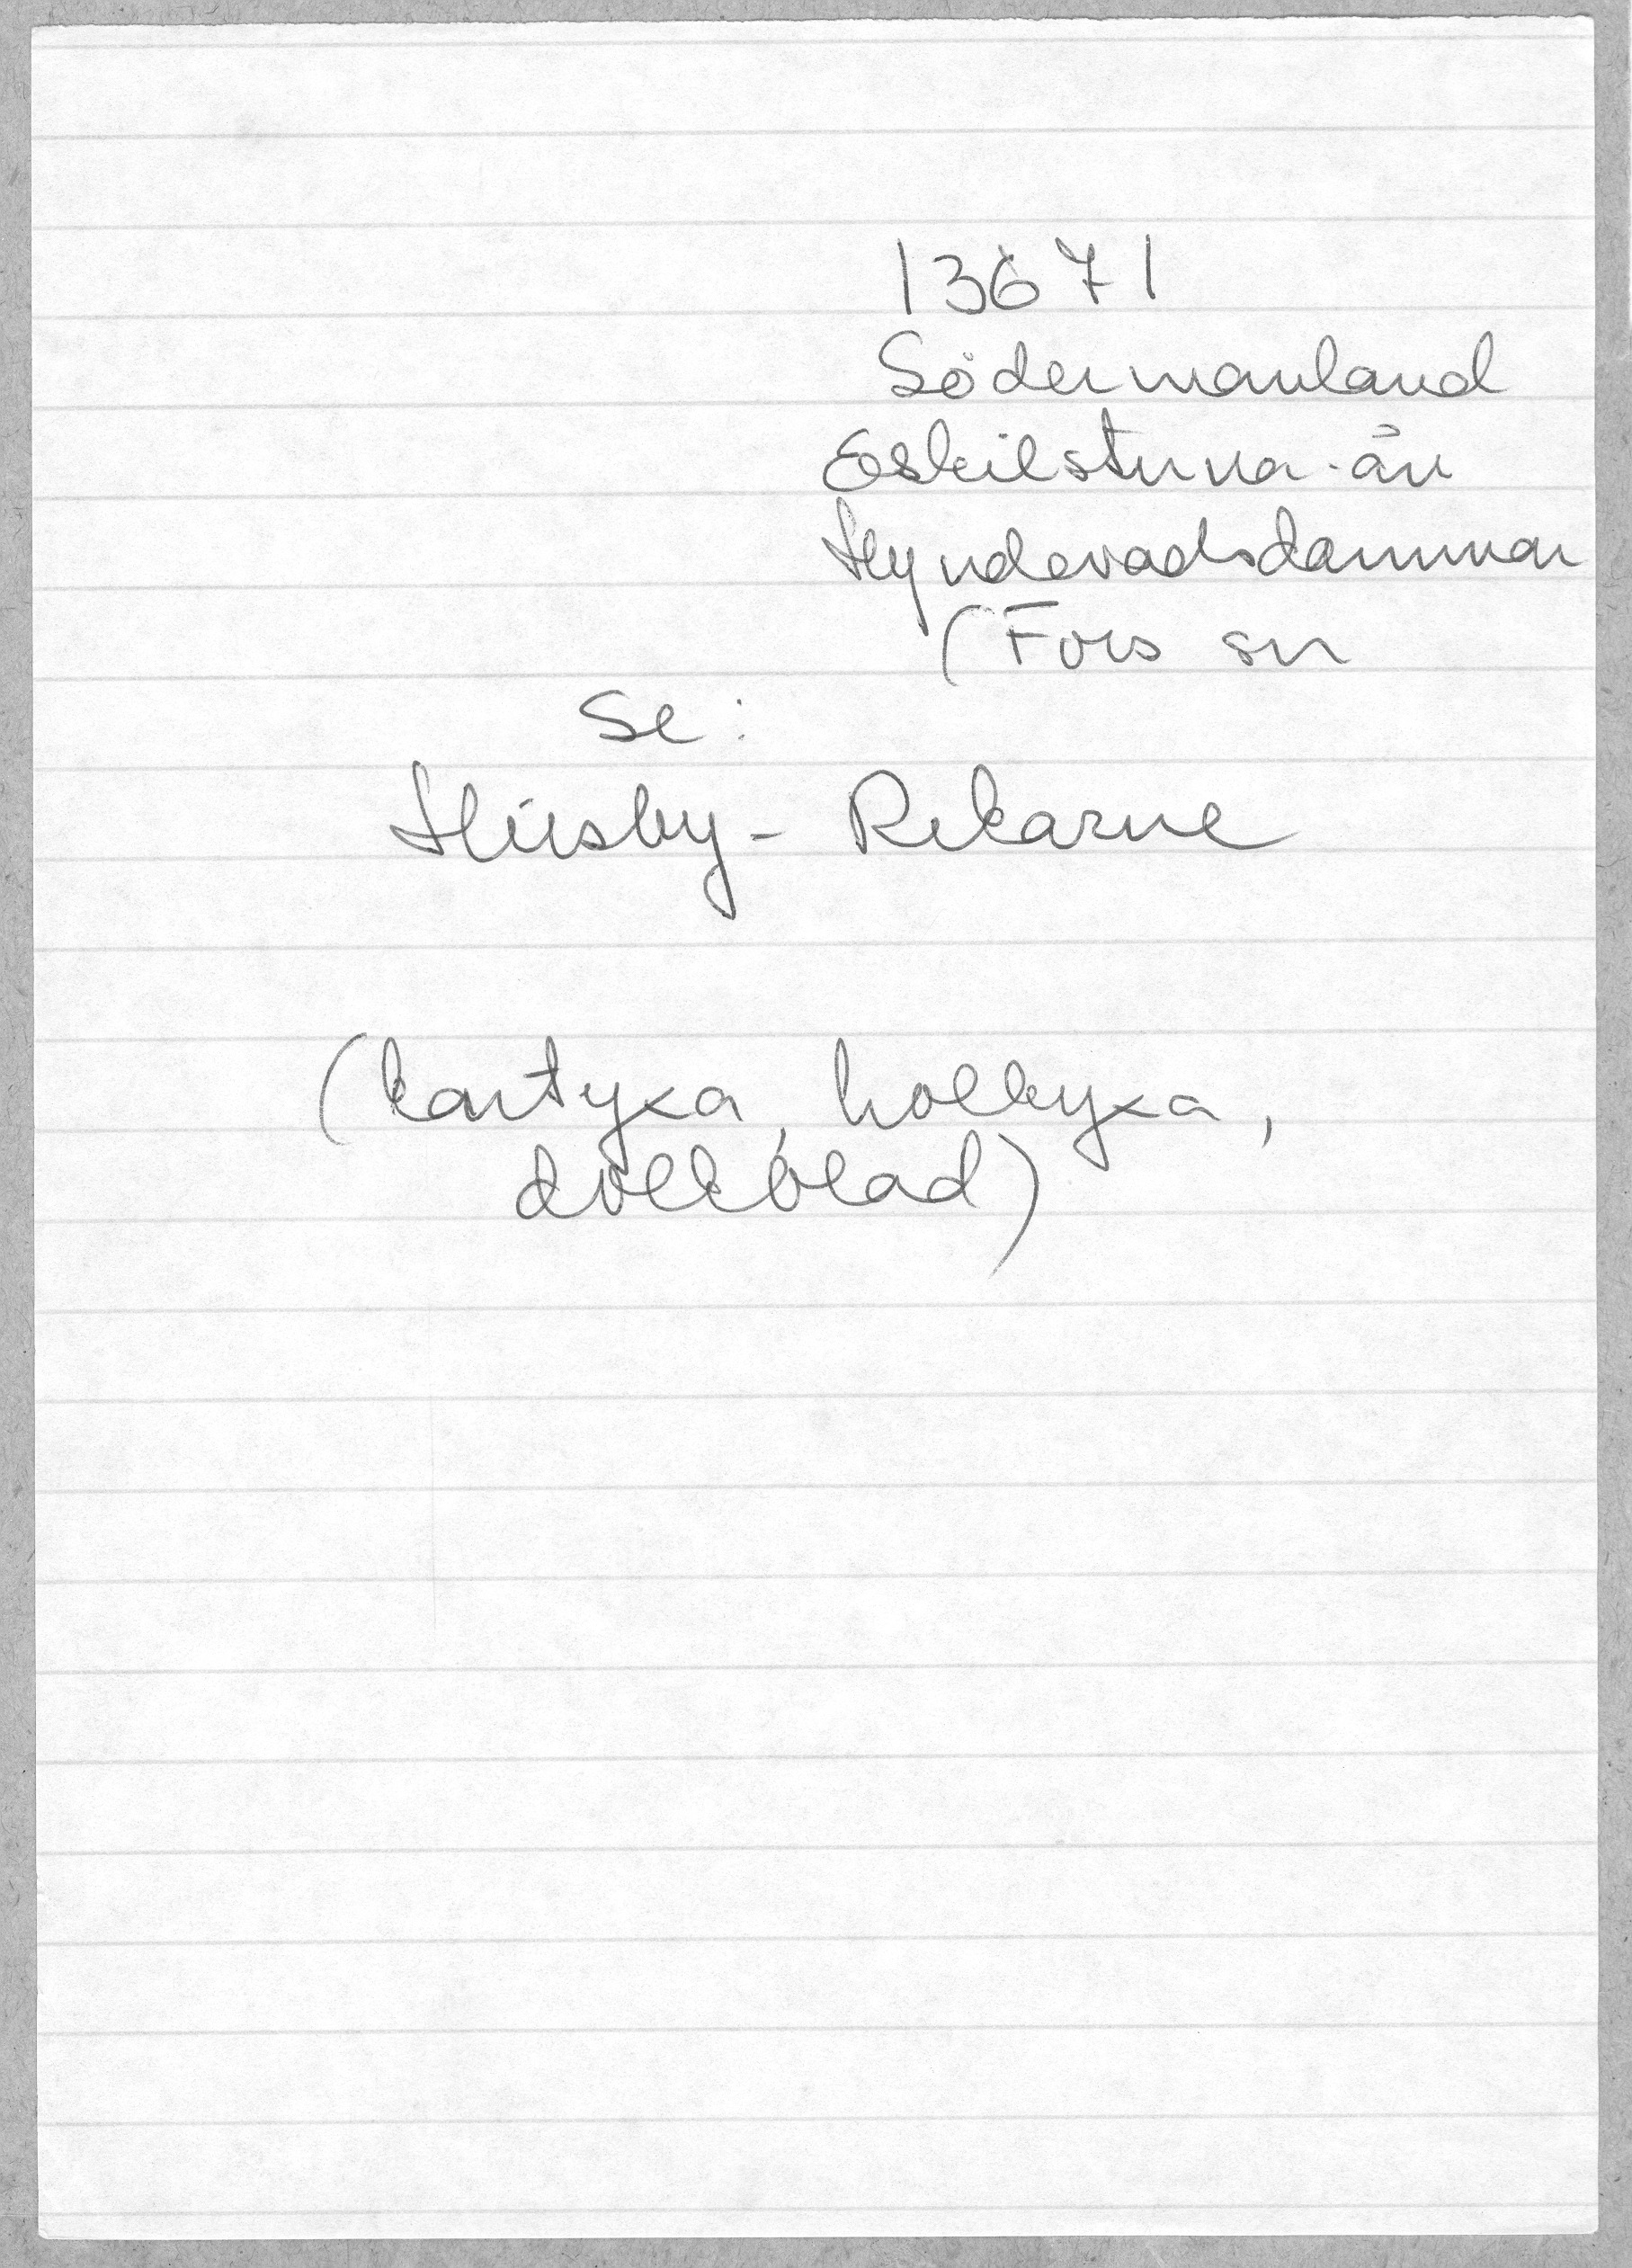 13671
Södermanland
Eskilstuna-ån
Hyndevadsdammar
(Fors sn
Se:
Husby-Rekarne
(kantyxa, holkyxa,
dolkblad)